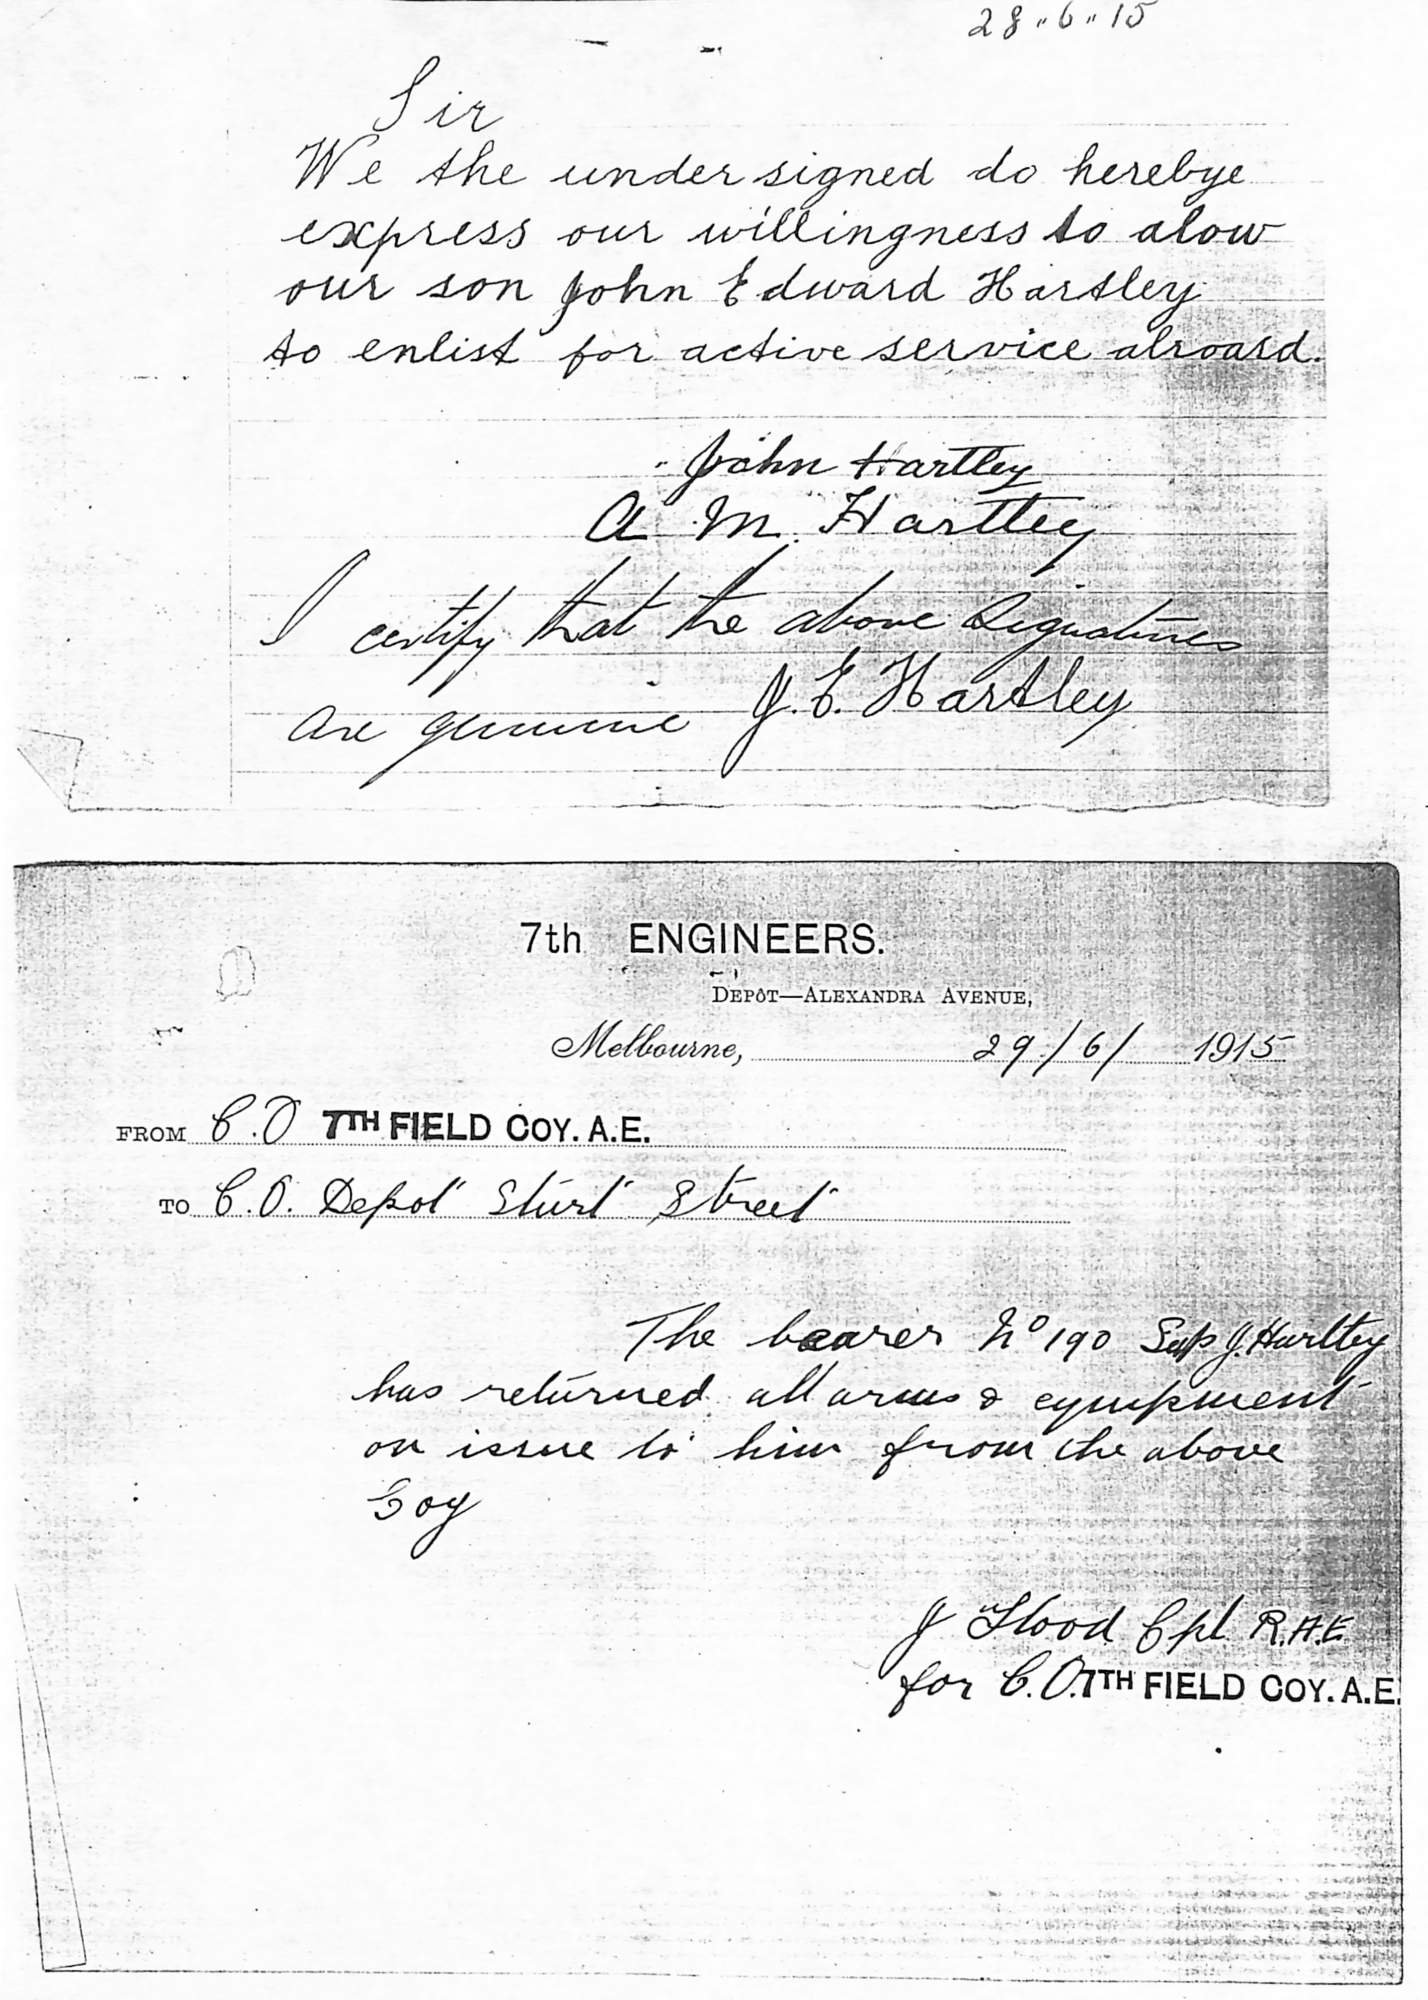 28"6"15
Sir
We the undersigned do herebye
express our willingness to alow
our son John Edward Hartley
to enlist for active service abroard.
John Hartley
A. M. Hartley
I certify that the above Signatures
are genuine J. E. Hartley
7th ENGINEERS.
DEPÔT—ALEXANDRA AVENUE,
Melbourne, 29/6/1915
FROM C.O 7TH FIELD COY. A.E.
TO C.O. Depot Sturt Street
The bearer No 190 Sap J. Hartley
has returned all arms & equipment
on issue to him from the above
Coy
J Flood Cpl R.A.E.
for C.O. 7TH FIELD COY. A.E.